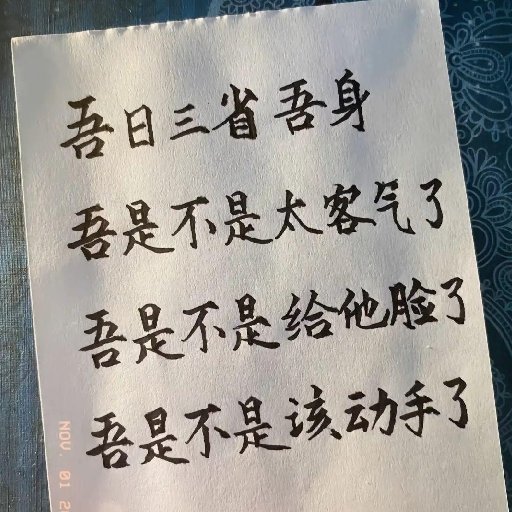 吾日三省吾身
吾是不是太客气了
吾是不是给他脸了
吾是不是该动手了
NOV. 01 2